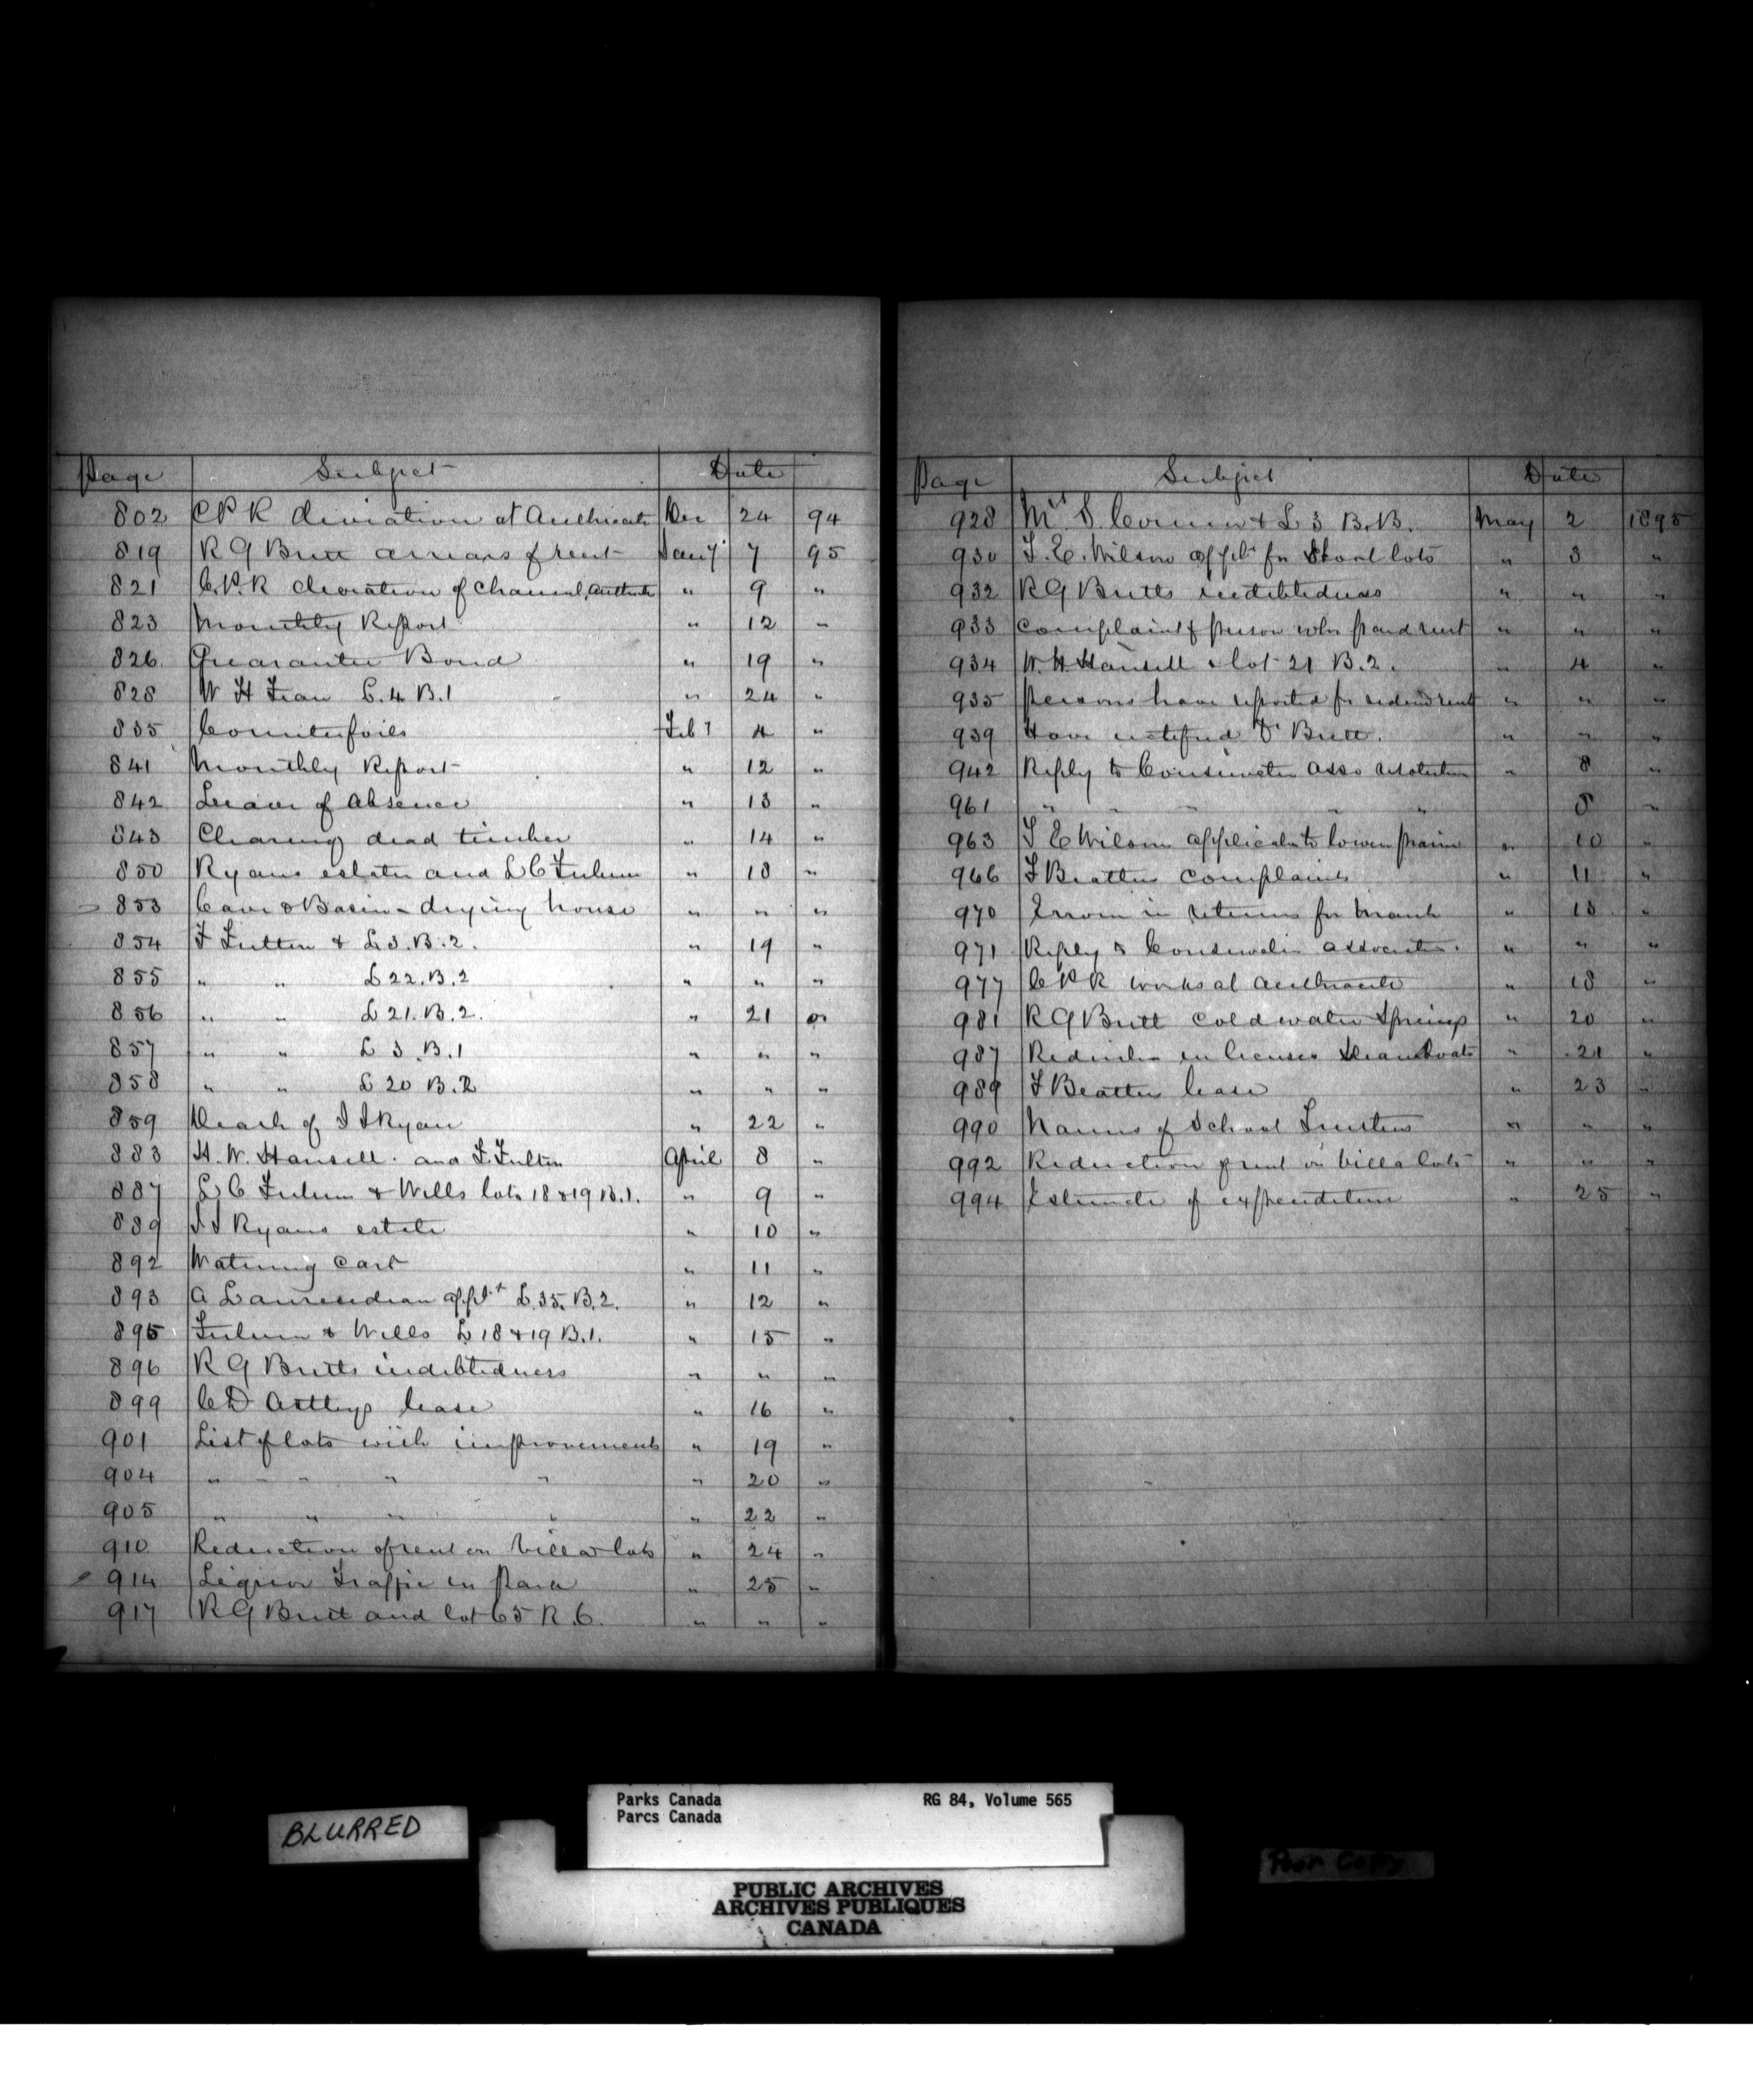 Page Subject Date
802 CPR deviation at Anthracite Dec 24 94
819 R G Brett arrears of rent Jany 7 95
821 C.P.R deviation of Channel, Anthracite " 9 "
823 Monthly Report " 12 "
826 Guarantee Bond " 19 "
828 W H L. 4 B.1 " 24 "
835 Counterfoils Feby 4 "
841 Monthly Report " 12 "
842 Leave of Absence " 13 "
843 Clearing dead timber " 14 "
850 Ryans estate and L C Fulmer " 18 "
853 Cave & Basin - drying house " " "
854 F Fulton & L 3. B. 2. " 19 "
855 " " L 22. B. 2 " " "
856 " " L 21. B. 2. " 21 "
857 " " L 3. B. 1 " " "
858 " " L 20 B. 2 " " "
859 Death of J J Ryan " 22 "
883 H. W. Hansell. and F. Fulton April 8 "
887 L C Fulmer & Wells lots 18 & 19 B. 1. " 9 "
889 J J Ryans estate " 10 "
892 Watering Cart " 11 "
893 A applt L. 35. B. 2. " 12 "
895 Fulmer & Wells L 18 & 19 B. 1. " 15 "
896 R G Bretts indebtedness " " "
899 C D lease " 16 "
901 List of lots with improvements " 19 "
904 " " " " " 20 "
905 " " " " " 22 "
910 Reduction of rent on villa lots " 24 "
914 Liquor Traffic in Park " 25 "
917 R G Brett and lot 65 R. 6. " " "
Page Subject Date
928 & L 3 B. B. May 2 1895
930 T. E. Wilson applt for lots " 3 "
932 R G Bretts indebtedness " " "
933 Complaint of person who paid rent " " "
934 W. H. Hansell & lot 21 B. 2. " 4 "
935 Persons have reported for reduced rent " " "
939 Have notified Dr Brett. " " "
942 Reply to Conservative Asso resolution " 8 "
961 " " " " " 8 "
963 T E Wilson to lower " 10 "
966 F Beatties Complaints " 11 "
970 Errors in returns for March " 13 "
971 Reply to Conservative association. " " "
977 C P R works at Anthracite " 18 "
981 R G Brett Cold water Springs " 20 "
987 Reduction in licenses Steamboats " 21 "
989 F Beatties lease " 23 "
990 Names of School Trustees " " "
992 Reduction of rent on villa lots " " "
994 Estimate of expenditure " 25 "
BLURRED
Parks Canada RG 84, Volume 565
Parcs Canada
Poor Copy
PUBLIC ARCHIVES
ARCHIVES PUBLIQUES
CANADA